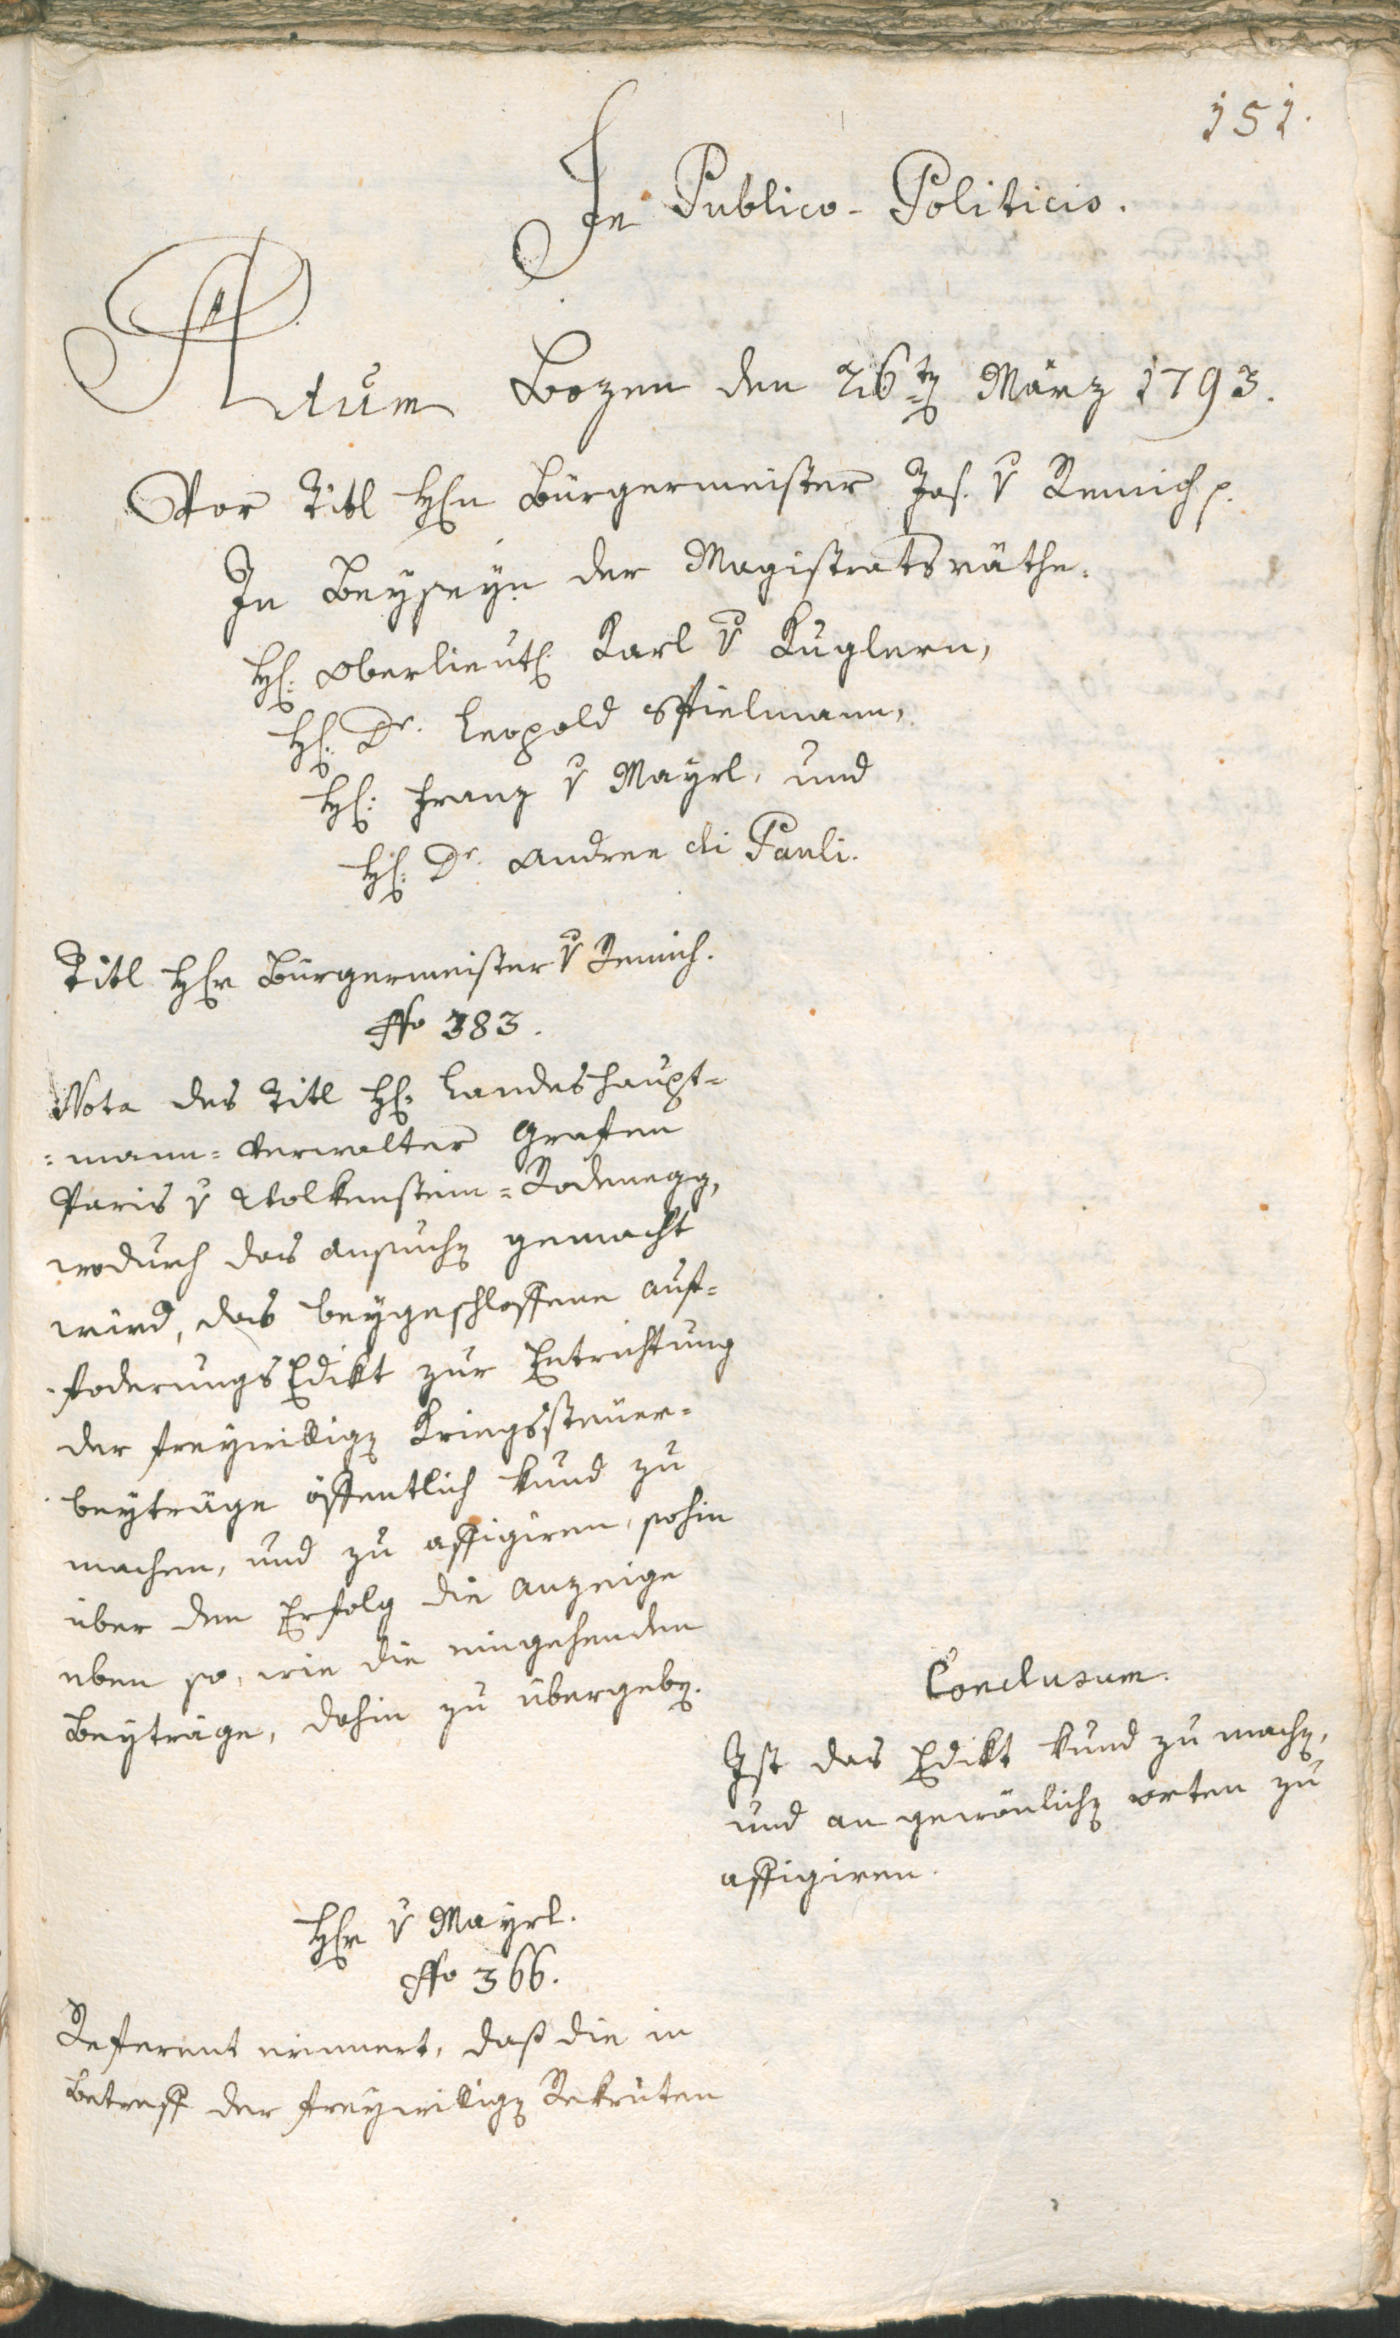 151.
In Publico-Politicis.
Actum Bozen den 26ten März 1793.
Vor Titl Hℓn Bürgermeister Jos. v Remich p.
In Beyseyn der Magistratsräthe.
Hℓ: Oberlieutℓ Karl v Kuglern,
Hℓ: Dr. Leopold Spielmann,
Hℓ: Franz v Mayrl, und
Hℓ: Dr. Andree di Pauli.
Titl Hℓr Bürgermeister v Remich.
No 383.
Nota des Titl Hℓ: Landeshaupt=
=mann=Verwalter Grafen
Paris v Wolkenstein=Rodenegg,
wodurch das Ansuchen gemacht
wird, das beygeschlossene Auf=
foderungsEdikt zur Entrichtung
der freywilligen Kriegssteuer=
beyträge öffentlich kund zu
machen, und zu affigiren, sohin
über den Erfolg die Anzeige
eben so, wie die eingehenden
Beyträge, dahin zu übergeben.
Conclusum.
Ist das Edikt kund zu machen,
und an gewönlichen Orten zu
affigiren.
Hℓr v Mayrl.
No 366.
Referent erinnert, daß die in
Betreff der freywilligen Rekruten